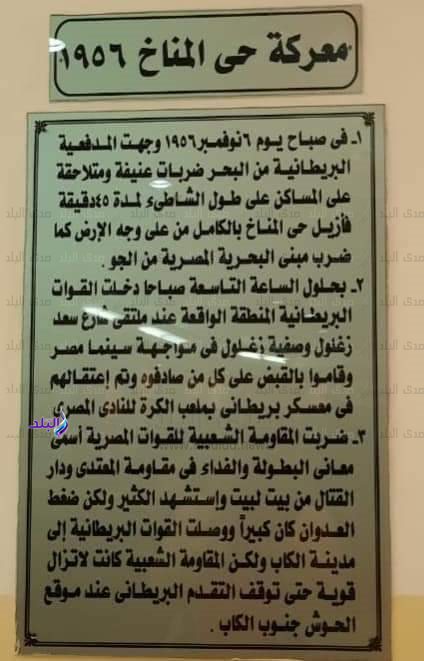 معركة حى المناخ ١٩٥٦
١ـ فى صباح يوم ٦ نوفمبر ١٩٥٦ وجهت المدفعية
البريطانية من البحر ضربات عنيفة ومتلاحقة
على المساكن على طول الشاطىء لمدة ٤٥ دقيقة
فأزيل حى المناخ بالكامل من على وجه الإرض كما
ضرب مبنى البحرية المصرية من الجو .
٢ـ بحلول الساعة التاسعة صباحا دخلت القوات
البريطانية المنطقة الواقعة عند ملتقى شارع سعد
زغلول وصفية زغلول فى مواجهة سينما مصر
وقاموا بالقبض على كل من صادفوه وتم إعتقالهم
فى معسكر بريطانى بملعب الكرة للنادى المصرى
٣ـ ضربت المقاومة الشعبية للقوات المصرية أسمى
معانى البطولة والفداء فى مقاومة المعتدى ودار
القتال من بيت لبيت وإستشهد الكثير ولكن ضغط
العدوان كان كبيراً ووصلت القوات البريطانية إلى
مدينة الكاب ولكن المقاومة الشعبية كانت لاتزال
قوية حتى توقف التقدم البريطانى عند موقع
الحوش جنوب الكاب .
البلد